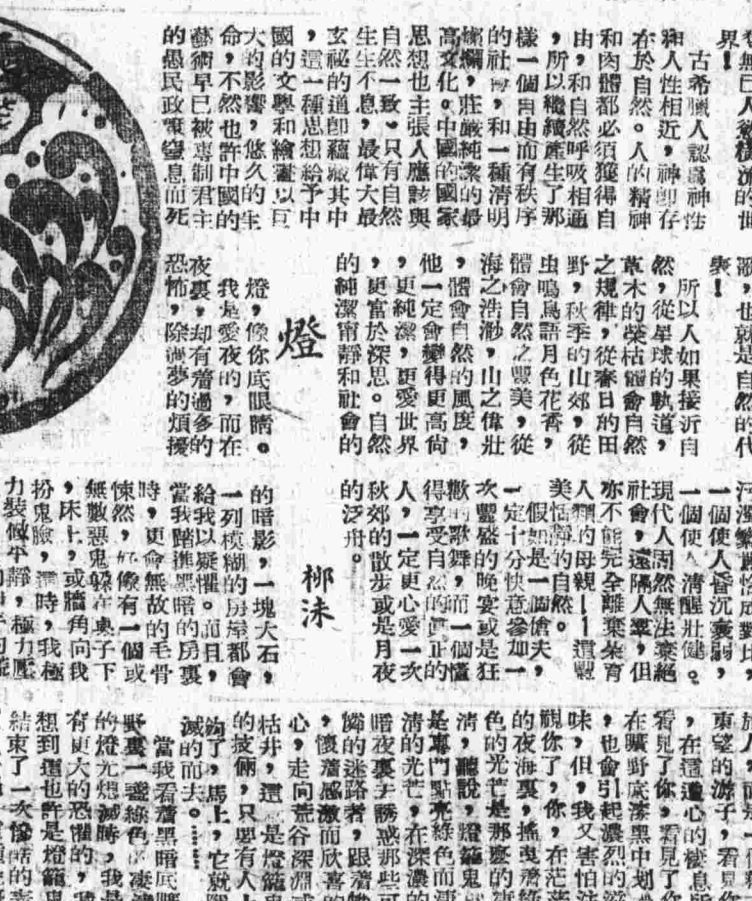 界！
古希臘人認爲神性
和人性相近，神卽存
在於自然。人的精神
和肉體都必須獲得自
由，和自然呼吸相通
，所以繼續產生了那
樣一個自由而有秩序
的社會，和一種清明
燦爛，莊嚴純潔的最
高文化。中國的國家
思想也主張人應該與
自然一致。只有自然
生生不息，最偉大最
玄秘的道卽蘊藏其中
，這一種思想給予中
國的文學和繪畫以巨
大的影響，悠久的生
命，不然也許中國的
藝術早已被專制君主
的愚民政策窒息而死
，也就是自然的代
表！
所以人如果接近自
然，從星球的軌道，
草木的榮枯體會自然
之規律，從春日的田
野，秋季的山郊，從
虫鳴鳥語月色花香，
體會自然之豐美，從
海之浩渺，山之偉壯
，體會自然的風度，
他一定會變得更高尙
，更純潔，更愛世界
，更富於深思。自然
的純潔甯靜和社會的
一個使人昏沉衰弱，
一個使人清醒壯健。
現代人固然無法棄絕
社會，遠隔人羣，但
亦不能完全離棄養育
人類的母親——這豐
美恬靜的自然。
假如是一個傖夫，
一定十分快意參加一
次豐盛的晚宴或是狂
歡的歌舞，而一個懂
得享受自然的眞正的
人，一定更心愛一次
秋郊的散步或是月夜
的泛舟。
燈
柳洙
燈，像你底眼睛。
我是愛夜的，而在
夜裏，却有着過多的
恐怖，除過夢的煩擾
的暗影，一塊大石，
一列模糊的房屋都會
給我以疑懼。而且，
當我踏進黑暗的房裏
時，更會無故的毛骨
悚然，好像有一個或
無數惡鬼躲在桌子下
，床上，或牆角向我
扮鬼臉，這時，我極
力裝做平靜，極力壓
東望的游子，看見你
，在這遺心的棲息
看見了你，看見了
在曠野底漆黑中划
，也會引起濃烈的
味，但，我又害怕
視你了，你，在茫
的夜海裏，搖曳着
色的光芒是那麼的
清，聽說，燈籠鬼
是專門點亮綠色而
清的光芒，在深濃的
暗夜裏去誘惑那些可
憐的迷路者，跟着
，懷着感激而欣喜的
心，走向荒谷深淵或
枯井，這是燈籠鬼
的技倆，只要有人
夠了，馬上，它就
滅的而去。……
當我看着黑暗底
野裏一盞綠色的凄
的燈光熄滅時，我是
有更大的恐懼的，
想到這也許是燈籠鬼
結束了一次慘酷的